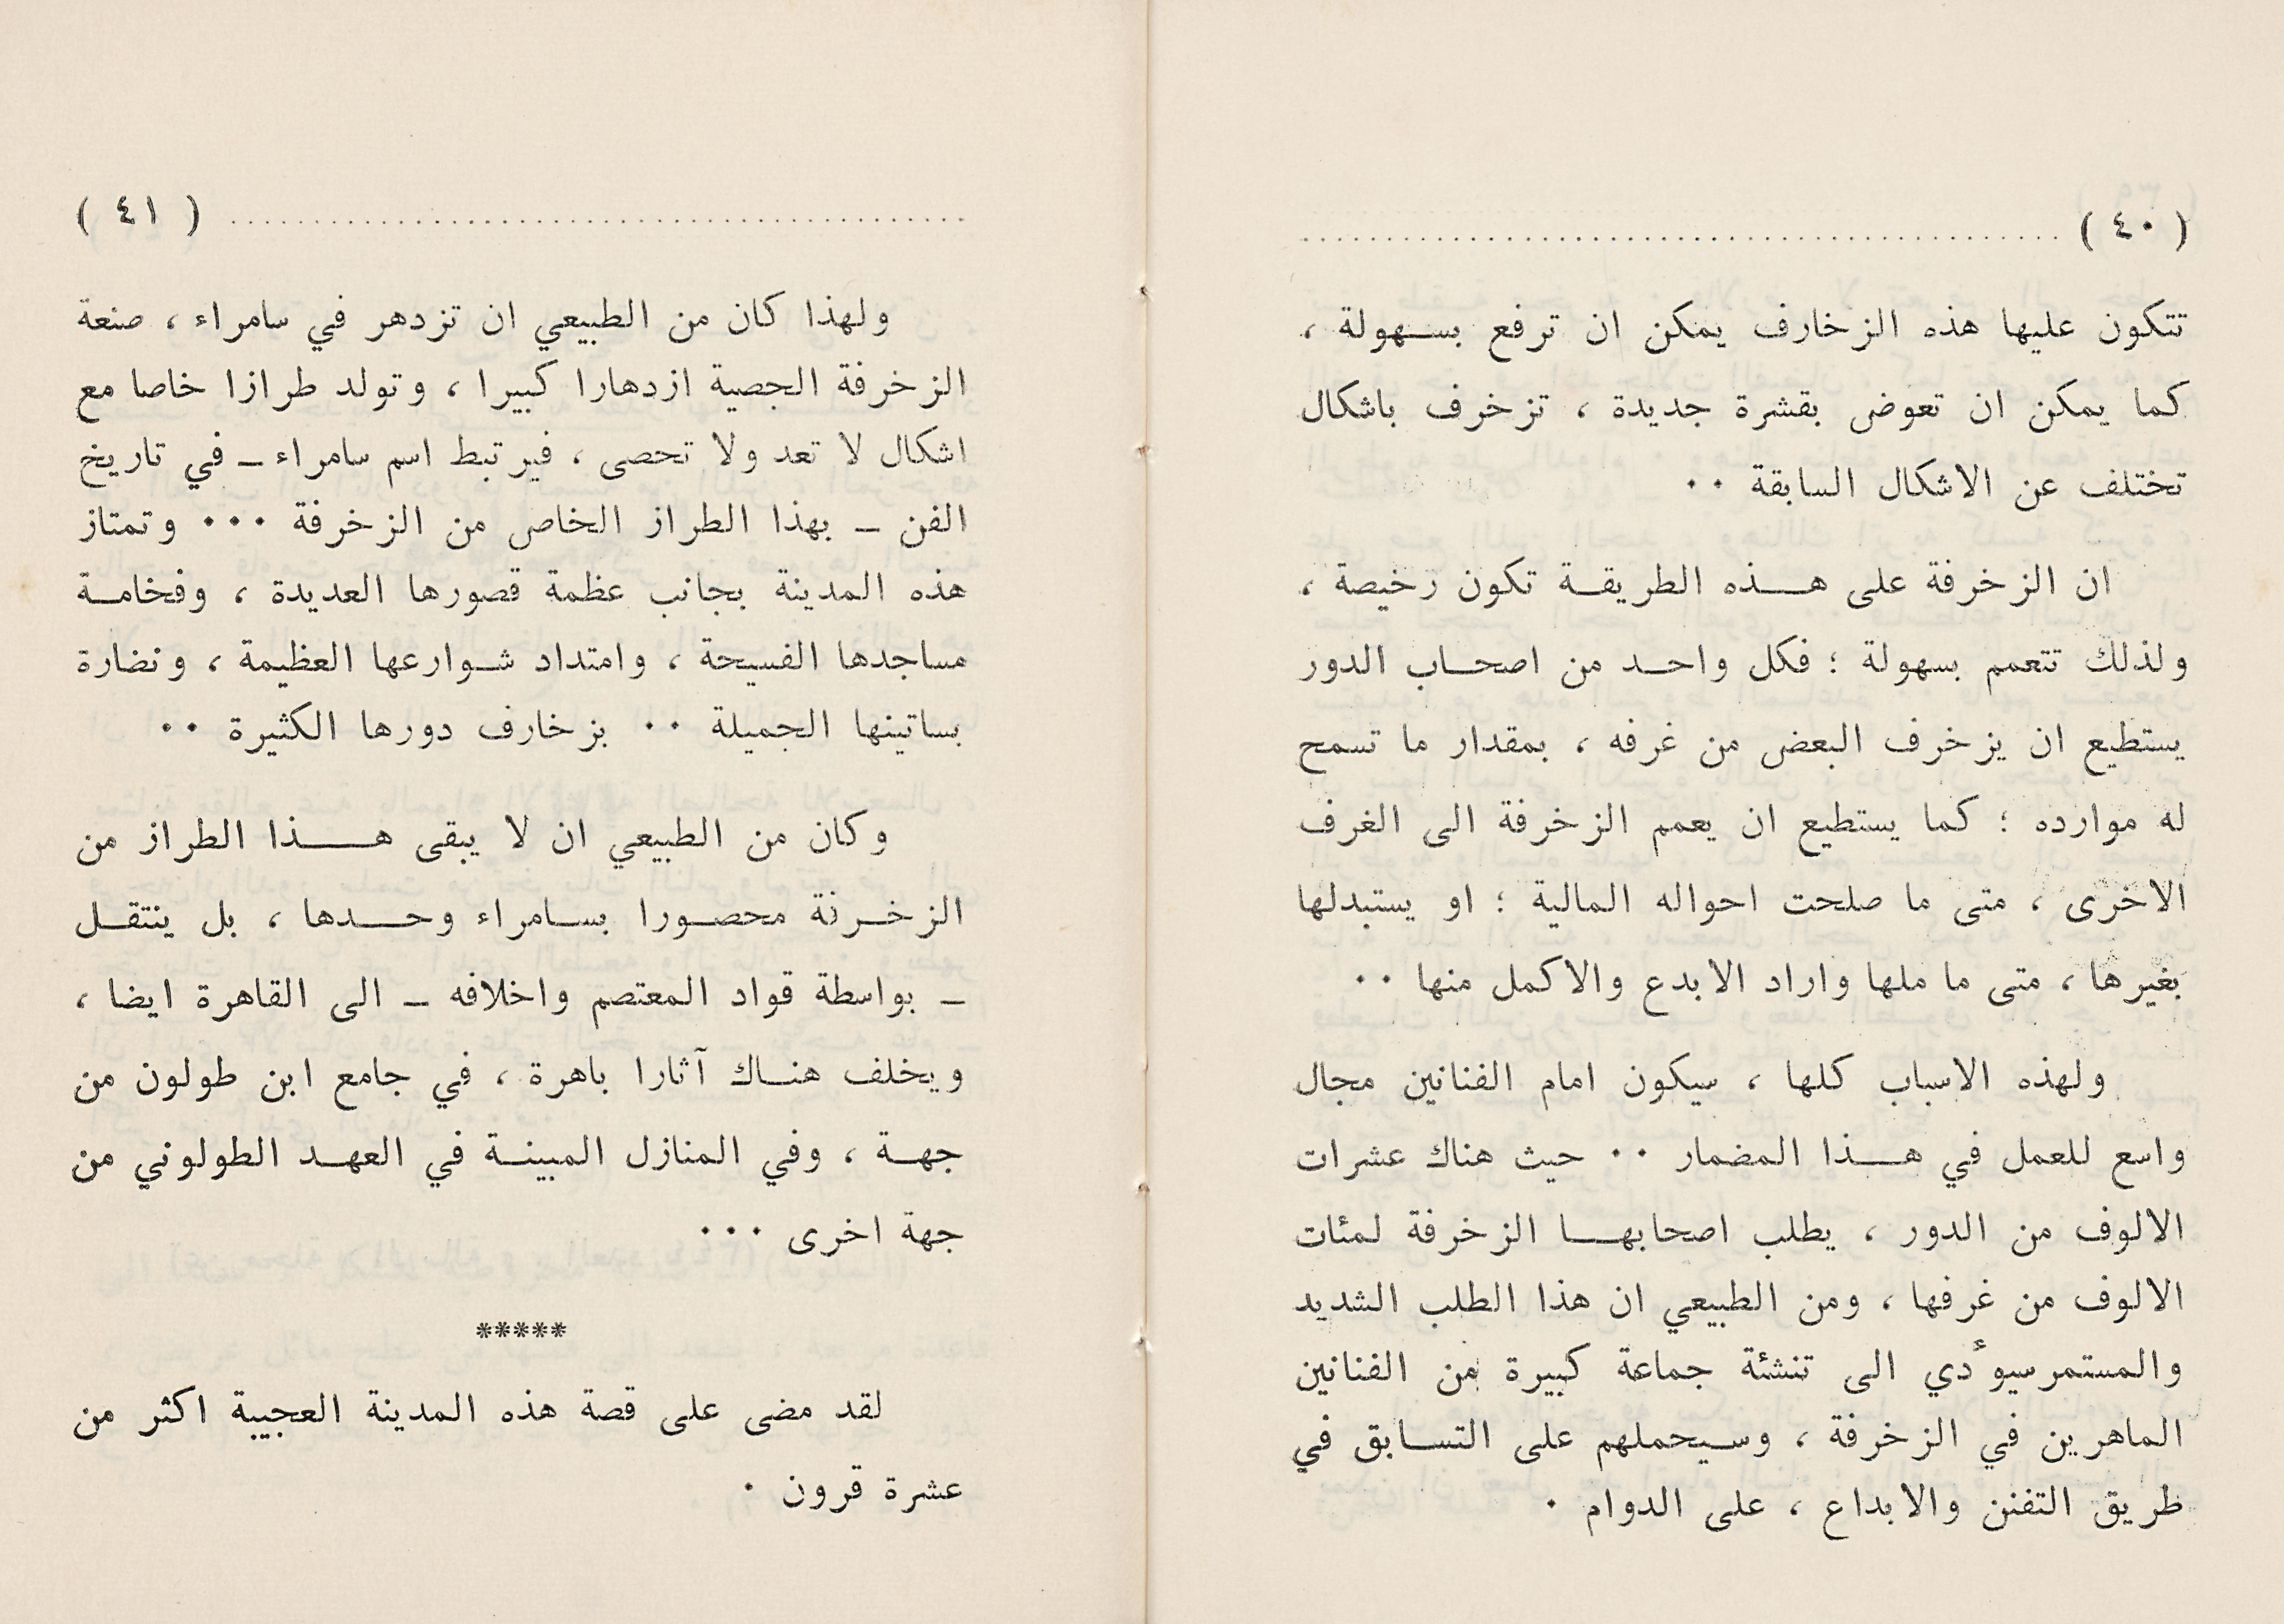 ( ٤٠ )
تتكون عليها هذه الزخارف يمكن ان ترفع بسهولة ،
كما يمكن ان تعوض بقشرة جديدة ، تزخرف باشكال
تختلف عن الاشكال السابقة ٠٠
ان الزخرفة على هذه الطريقة تكون رخيصة ،
ولذلك تتعمم بسهولة ؛ فكل واحد من اصحاب الدور
يستطيع ان يزخرف البعض من غرفه ، بمقدار ما تسمح
له موارده ؛ كما يستطيع ان يعمم الزخرفة الى الغرف
الاخرى ، متى ما صلحت احواله المالية ؛ او يستبدلها
بغيرها ، متى ما ملها واراد الابدع والاكمل منها ٠٠
ولهذه الاسباب كلها ، سيكون امام الفنانين مجال
واسع للعمل في هذا المضمار ٠٠ حيث هناك عشرات
الالوف من الدور ، يطلب اصحابها الزخرفة لمئات
الالوف من غرفها ، ومن الطبيعي ان هذا الطلب الشديد
والمستمر سيؤدي الى تنشئة جماعة كبيرة من الفنانين
الماهرين في الزخرفة ، وسيحملهم على التسابق في
طريق التفنن والابداع ، على الدوام ٠
( ٤١ )
ولهذا كان من الطبيعي ان تزدهر في سامراء ، صنعة
الزخرفة الجصية ازدهارا كبيرا ، وتولد طرازا خاصا مع
اشكال لا تعد ولا تحصى ، فيرتبط اسم سامراء ـ في تاريخ
الفن ـ بهذا الطراز الخاص من الزخرفة ٠٠٠ وتمتاز
هذه المدينة بجانب عظمة قصورها العديدة ، وفخامة
مساجدها الفسيحة ، وامتداد شوارعها العظيمة ، ونضارة
بساتينها الجميلة ٠٠ بزخارف دورها الكثيرة ٠٠
وكان من الطبيعي ان لا يبقى هذا الطراز من
الزخرفة محصورا بسامراء وحدها ، بل ينتقل
ـ بواسطة قواد المعتصم واخلافه ـ الى القاهرة ايضا ،
ويخلف هناك آثارا باهرة ، في جامع ابن طولون من
جهة ، وفي المنازل المبينة في العهد الطولوني من
جهة اخرى ٠٠٠
*****
لقد مضى على قصة هذه المدينة العجيبة اكثر من
عشرة قرون ٠